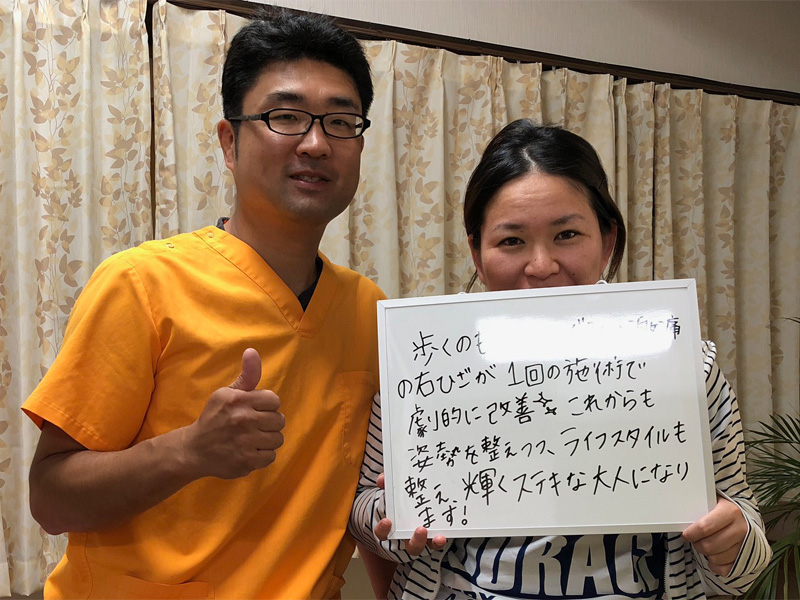 歩くのも
痛
の右ひざが1回の施術で
劇的に改善 これからも
姿勢を整えつつ、ライフスタイルも
整え、輝くステキな大人になり
ます!
URAG